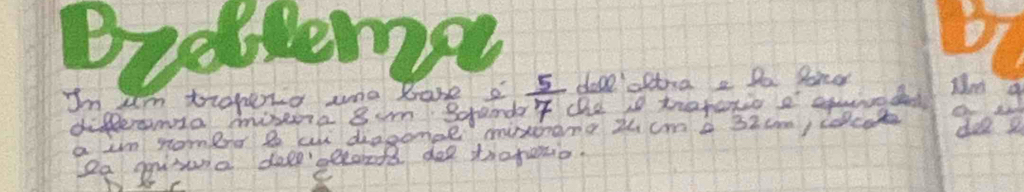 Problema
In un trapezio una base è 5/7 dell'altra e la loro
differenza misura 8 cm. Sapendo che il trapezio è equivalente
a un rombo le cui diagonali misurano 24 cm e 32 cm, calcola
la misura dell'altezza del trapezio.